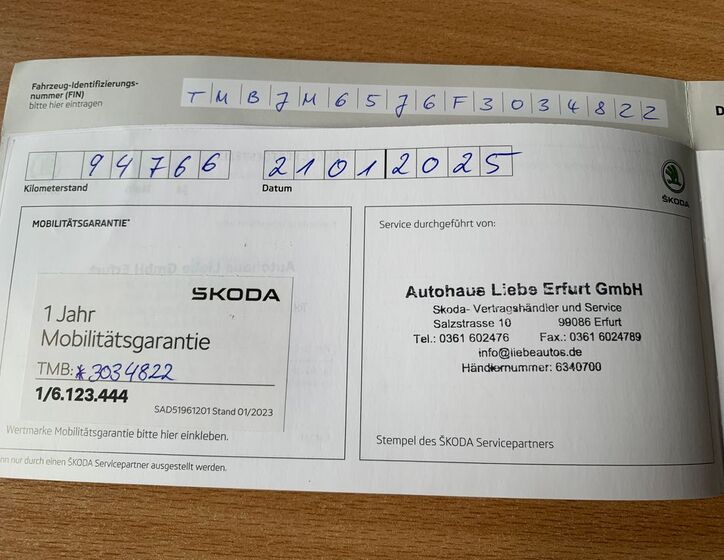 Fahrzeug-Identifizierungs-
nummer (FIN)
bitte hier eintragen
TMBJM6576F3034822
94766
21012025
Kilometerstand
Datum
ŠKODA
MOBILITÄTSGARANTIE*
Service durchgeführt von:
ŠKODA
1 Jahr
Mobilitätsgarantie
TMB: *3034822
1/6.123.444
SAD51961201 Stand 01/2023
Wertmarke Mobilitätsgarantie bitte hier einkleben.
Autohaus Liebe Erfurt GmbH
Skoda- Vertragshändler und Service
Salzstrasse 10 99086 Erfurt
Tel.: 0361 602476 Fax.: 0361 6024789
info@liebeautos.de
Händlernummer: 6340700
Stempel des ŠKODA Servicepartners
nn nur durch einen ŠKODA Servicepartner ausgestellt werden.
D